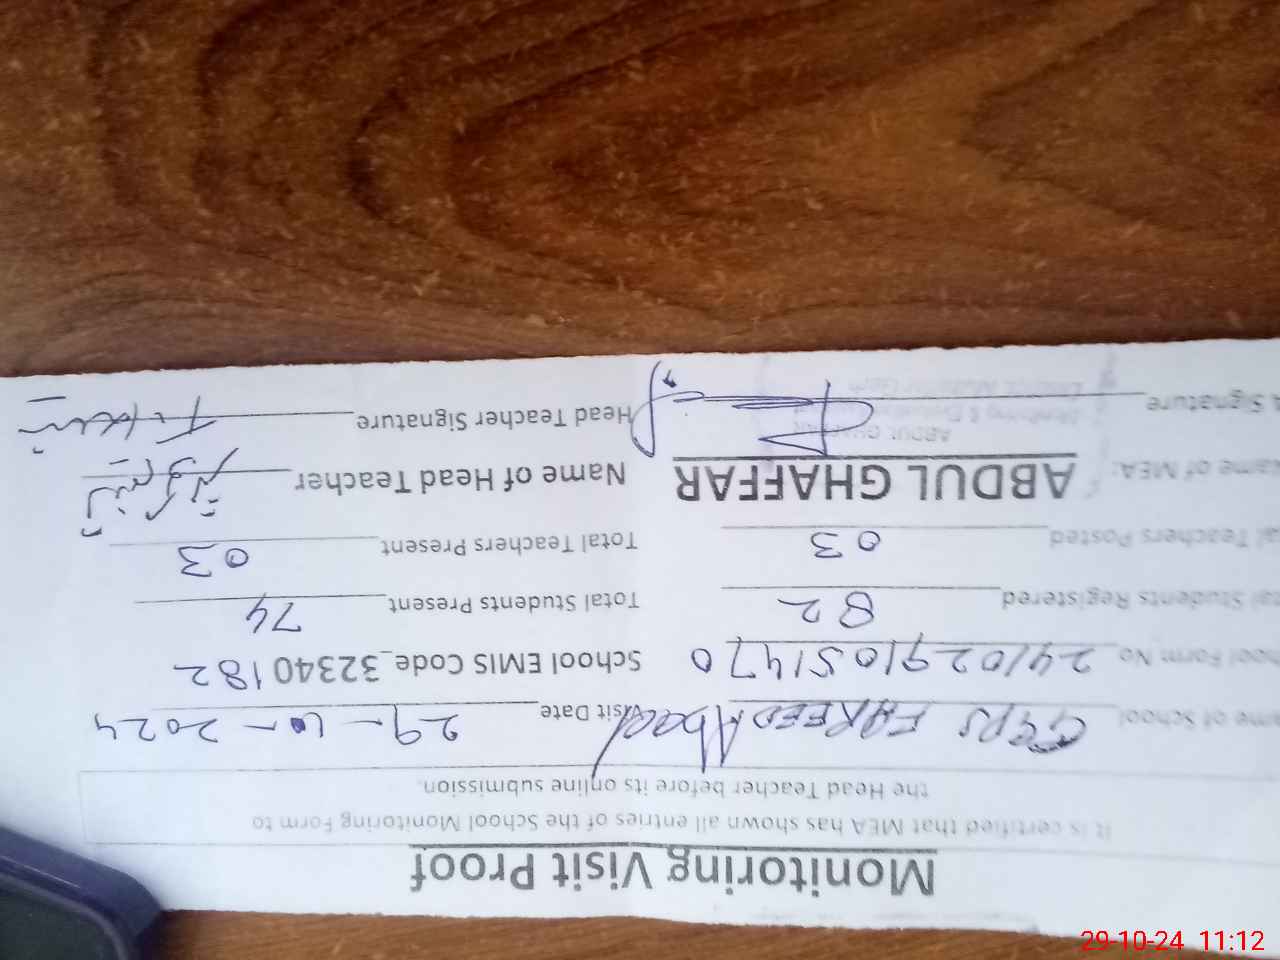 Monitoring Visit Proof
It is certified that MEA has shown all entries of the School Monitoring Form to
the Head Teacher before its online submission.
me of School GGPS FAREED Abad Visit Date 29-10-2024
hool Form No 2410291051470 School EMIS Code_32340182
al Students Registered 82 Total Students Present 74
al Teachers Posted 03 Total Teachers Present 03
ame of MEA: ABDUL GHAFFAR Name of Head Teacher
ABDUL GHAFFAR
Signature Head Teacher Signature
29-10-24 11:12